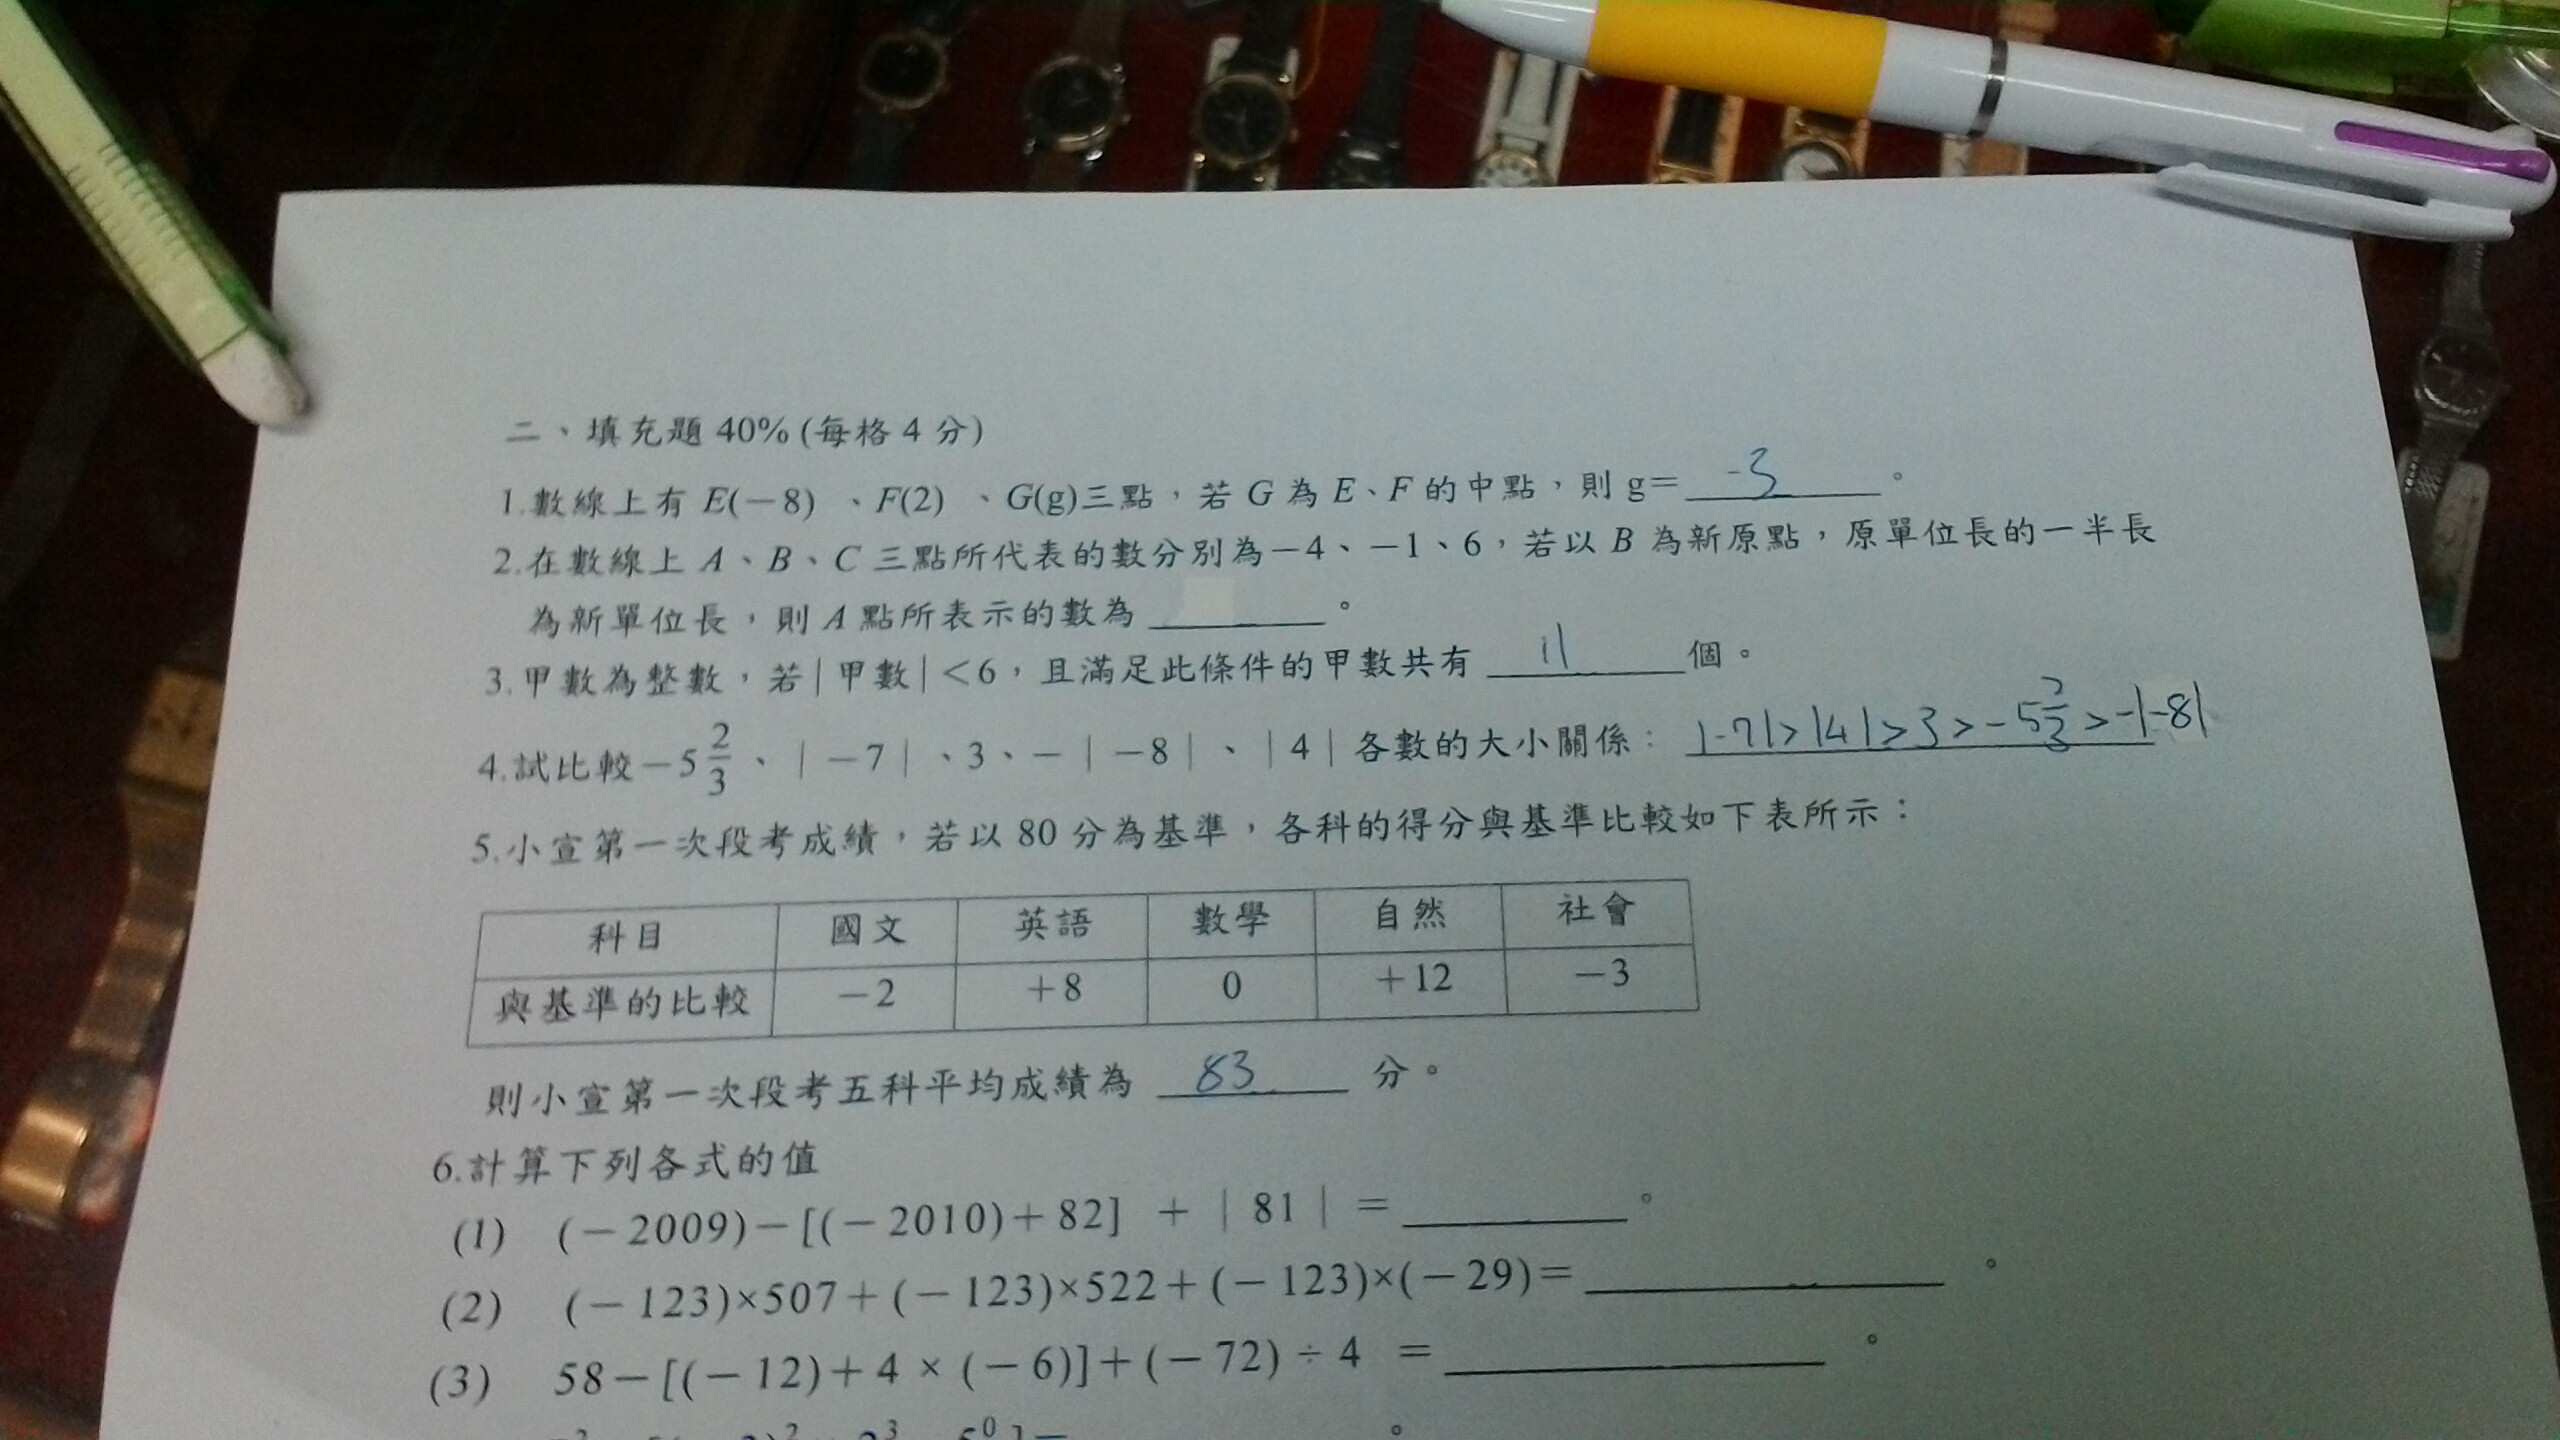 二、填充題 40% (每格 4 分)
1.數線上有 E(－8) 、F(2) 、G(g)三點，若 G 為 E、F 的中點，則 g＝ -3 。
2.在數線上 A、B、C 三點所代表的數分別為－4、－1、6，若以 B 為新原點，原單位長的一半長
為新單位長，則 A 點所表示的數為 ______ 。
3.甲數為整數，若|甲數|＜6，且滿足此條件的甲數共有 11 個。
4.試比較－5 2/3、|－7|、3、－|－8|、|4|各數的大小關係： |-7|>|4|>3>-5 2/3>-|-8|
5.小宣第一次段考成績，若以 80 分為基準，各科的得分與基準比較如下表所示：
科目 國文 英語 數學 自然 社會
與基準的比較 －2 ＋8 0 ＋12 －3
則小宣第一次段考五科平均成績為 83 分。
6.計算下列各式的值
(1) (－2009)－[(－2010)＋82] ＋|81|＝______。
(2) (－123)×507＋(－123)×522＋(－123)×(－29)＝______。
(3) 58－[(－12)＋4×(－6)]＋(－72)÷4 ＝______。